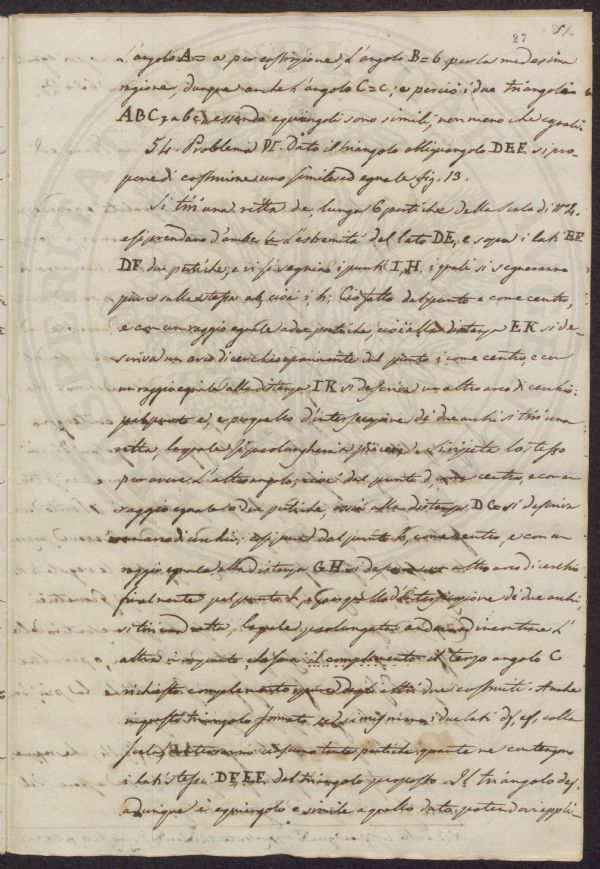 27 51.
L'angolo A = a per costruzione, L'angolo B = b per la medesima
ragione, dunque anche L'angolo C = c, e perciò i due triangoli
ABC, abc, essendo equiangoli sono simili, non meno che eguali.
54. Problema VI. Dato il triangolo obliquangolo DEF. si pro-
pone di costruirne uno simile ed eguale fig. 13.
Si tiri una retta de, lunga 6 pertiche della Scala di
e si prendano d'ambe le L'estremità del lato DE, e sopra i lati EF.
DF due pertiche, e vi si segnino i punti I, H, i quali si segneranno
pure sulla stessa cioè i, h: Ciò fatto dal punto e come centro,
e con un raggio eguale a due pertiche, cioè alla distanza EK si de-
scriva un arco di cerchio, e parimente dal punto i come centro, e con
un raggio eguale alla distanza IK si descriva un altro arco di cerchio:
pel punto e, e per quello d'intersezione di due archi si tiri una
retta, la quale si prolungherà a piacere. Si ripeta lo stesso
per avere L'altro angolo, cioè dal punto d, come centro, e con un
raggio eguale a due pertiche, ossia alla distanza DG si descriva
un arco di cerchio; e dal punto h, come centro, e con un
raggio eguale alla distanza GH si altro arco di cerchio
finalmente pel punto d, e per quello d'intersezione di due archi,
si tiri una retta, la quale prolungata andrà ad incontrare L'
altra il complimento il terzo angolo C
richiesto, complemento degli altri due costruiti. Anche
in questo triangolo formato i due lati df, ef, colla
scala tante pertiche quante ne contengono
i lati stessi DF, EF. del triangolo proposto. Il triangolo def,
adunque è equiangolo e simile a quello dato, potendosi appli-